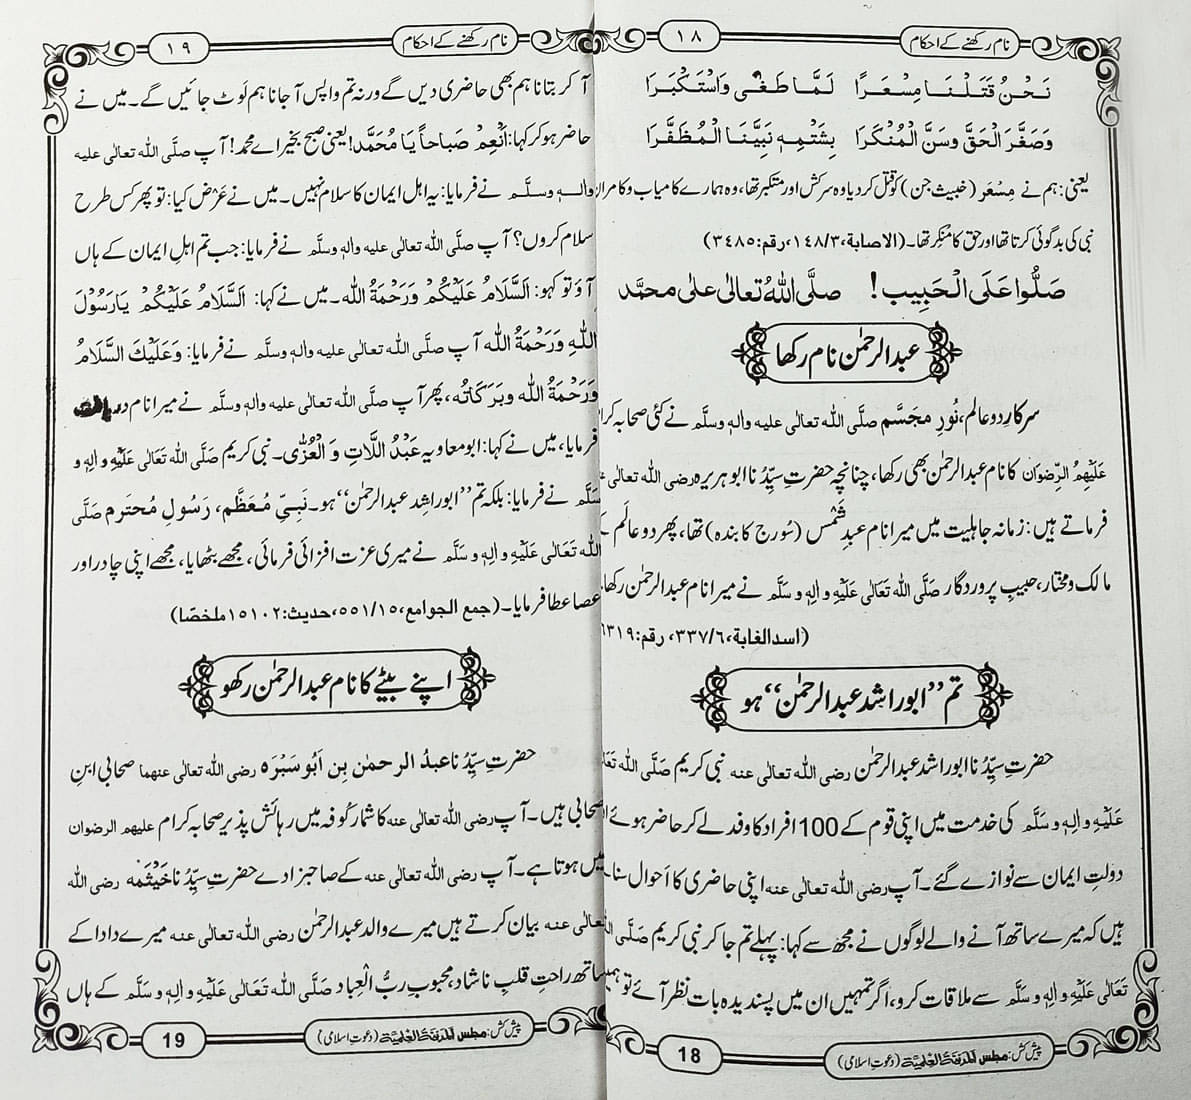 نام رکھنے کے احکام
۱۸
نَحْنُ قَتَلْنَا مِسْعَرًا لَمَّا طَغٰی وَاسْتَکْبَرَا
وَصَغَّرَ الْحَقَّ وَسَنَّ الْمُنْکَرَا بِشَتْمِہٖ نَبِیَّنَا الْمُظَفَّرَا
یعنی: ہم نے مِسْعَر (خبیث جن) کو قتل کر دیا وہ سرکش اور متکبر تھا، وہ ہمارے کامیاب و کامران
نبی کی بدگوئی کرتا تھا اور حق کا منکر تھا۔ (الاصابة، ۱۴۸/۳، رقم: ۳۴۸۵)
صَلُّوا عَلَی الْحَبِیب! صلَّی اللّٰہُ تعالٰی علٰی محمَّد
عبدالرحمٰن نام رکھا
سرکارِ دو عالم، نُورِ مجَسَّم صلَّی اللّٰہ تعالٰی علیہ واٰلہٖ وسلَّم نے کئی صحابہ کرام
عَلَیْہِمُ الرِّضْوَان کا نام عبدالرحمٰن بھی رکھا، چنانچہ حضرتِ سیِّدُنا ابو ہریرہ رضی اللّٰہ تعالٰی
فرماتے ہیں: زمانہ جاہلیت میں میرا نام عبدِ شَمْس (سُورج کا بندہ) تھا، پھر دو عالَم کے
مالک و مختار، حبیبِ پروردگار صَلَّی اللّٰہُ تَعَالٰی عَلَیْہِ وَاٰلِہٖ وَسَلَّم نے میرا نام عبدالرحمٰن رکھا۔
(اسد الغابة، ۳۳۷/۶، رقم: ۶۳۱۹
تم ”ابوراشِد عبدالرحمٰن“ ہو
حضرتِ سیِّدُنا ابوراشد عبدالرحمٰن رضی اللّٰہ تعالٰی عنہ نبی کریم صَلَّی اللّٰہ تَعَالٰی
عَلَیْہِ وَاٰلِہٖ وَسَلَّم کی خدمت میں اپنی قوم کے 100 افراد کا وفد لے کر حاضر ہوئے اور
دولتِ ایمان سے نوازے گئے۔ آپ رضی اللّٰہ تعالٰی عنہ اپنی حاضری کا اَحوال سناتے
ہیں کہ میرے ساتھ آنے والے لوگوں نے مجھ سے کہا: پہلے تم جا کر نبی کریم صَلَّی اللّٰہ
تَعَالٰی عَلَیْہِ وَاٰلِہٖ وَسَلَّم سے ملاقات کرو، اگر تمہیں ان میں پسندیدہ بات نظر آئے تو ہمیں
18
پیش کش: مجلس المدینۃ العلمیۃ (دعوتِ اسلامی)
نام رکھنے کے احکام
۱۹
آ کر بتانا ہم بھی حاضری دیں گے ورنہ تم واپس آ جانا ہم لَوٹ جائیں گے۔ میں نے
حاضر ہو کر کہا: اَنْعِمْ صَبَاحاً یَا مُحَمَّد! یعنی صبح بخیر اے محمد! آپ صلَّی اللّٰہ تعالٰی علیہ
واٰلہٖ وسلَّم نے فرمایا: یہ اہلِ ایمان کا سلام نہیں۔ میں نے عَرْض کیا: تو پھر کس طرح
سلام کروں؟ آپ صلَّی اللّٰہ تعالٰی علیہ واٰلہٖ وسلَّم نے فرمایا: جب تم اہلِ ایمان کے ہاں
آؤ تو کہو: اَلسَّلَامُ عَلَیْکُمْ وَرَحْمَۃُ اللّٰہ۔ میں نے کہا: اَلسَّلَامُ عَلَیْکُمْ یَارَسُوْلَ
اللّٰہِ وَرَحْمَۃُ اللّٰہ آپ صلَّی اللّٰہ تعالٰی علیہ واٰلہٖ وسلَّم نے فرمایا: وَعَلَیْکَ السَّلَامُ
وَرَحْمَۃُ اللّٰہ وَبَرَکَاتُہ، پھر آپ صلَّی اللّٰہ تعالٰی علیہ واٰلہٖ وسلَّم نے میرا نام
فرمایا، میں نے کہا: ابو معاویہ عَبْدُ اللَّاتِ وَ الْعُزّٰی۔ نبی کریم صَلَّی اللّٰہُ تَعَالٰی عَلَیْہِ وَاٰلِہٖ وَ
سَلَّم نے فرمایا: بلکہ تم ”ابوراشِد عبدالرحمٰن“ ہو۔ نَبِیِّ مُعَظَّم، رَسُولِ مُحترَم صَلَّی
اللّٰہُ تَعَالٰی عَلَیْہِ وَاٰلِہٖ وَسَلَّم نے میری عزت افزائی فرمائی، مجھے بٹھایا، مجھے اپنی چادر اور
عصا عطا فرمایا۔ (جمع الجوامع، ۵۵۱/۱۵، حدیث: ۱۵۱۰۲ ملخصًا)
اپنے بیٹے کا نام عبدالرحمٰن رکھو
حضرتِ سیِّدُنا عبدُ الرحمٰن بِن اَبُو سَبْرَہ رضی اللّٰہ تعالٰی عنھما صحابی ابنِ
صحابی ہیں۔ آپ رضی اللّٰہ تعالٰی عنہ کا شمار کُوفہ میں رہائش پذیر صحابہ کرام علیھم الرضوان
میں ہوتا ہے۔ آپ رضی اللّٰہ تعالٰی عنہ کے صاحبزادے حضرتِ سیِّدُنا خَیْثَمَہ رضی اللّٰہ
تعالٰی عنہ بیان کرتے ہیں میرے والد عبدالرحمٰن رضی اللّٰہ تعالٰی عنہ میرے دادا کے
ساتھ راحتِ قلبِ ناشاد، محبوبِ ربُّ الْعِباد صَلَّی اللّٰہُ تَعَالٰی عَلَیْہِ وَاٰلِہٖ وَسَلَّم کے ہاں
پیش کش: مجلس المدینۃ العلمیۃ (دعوتِ اسلامی)
19